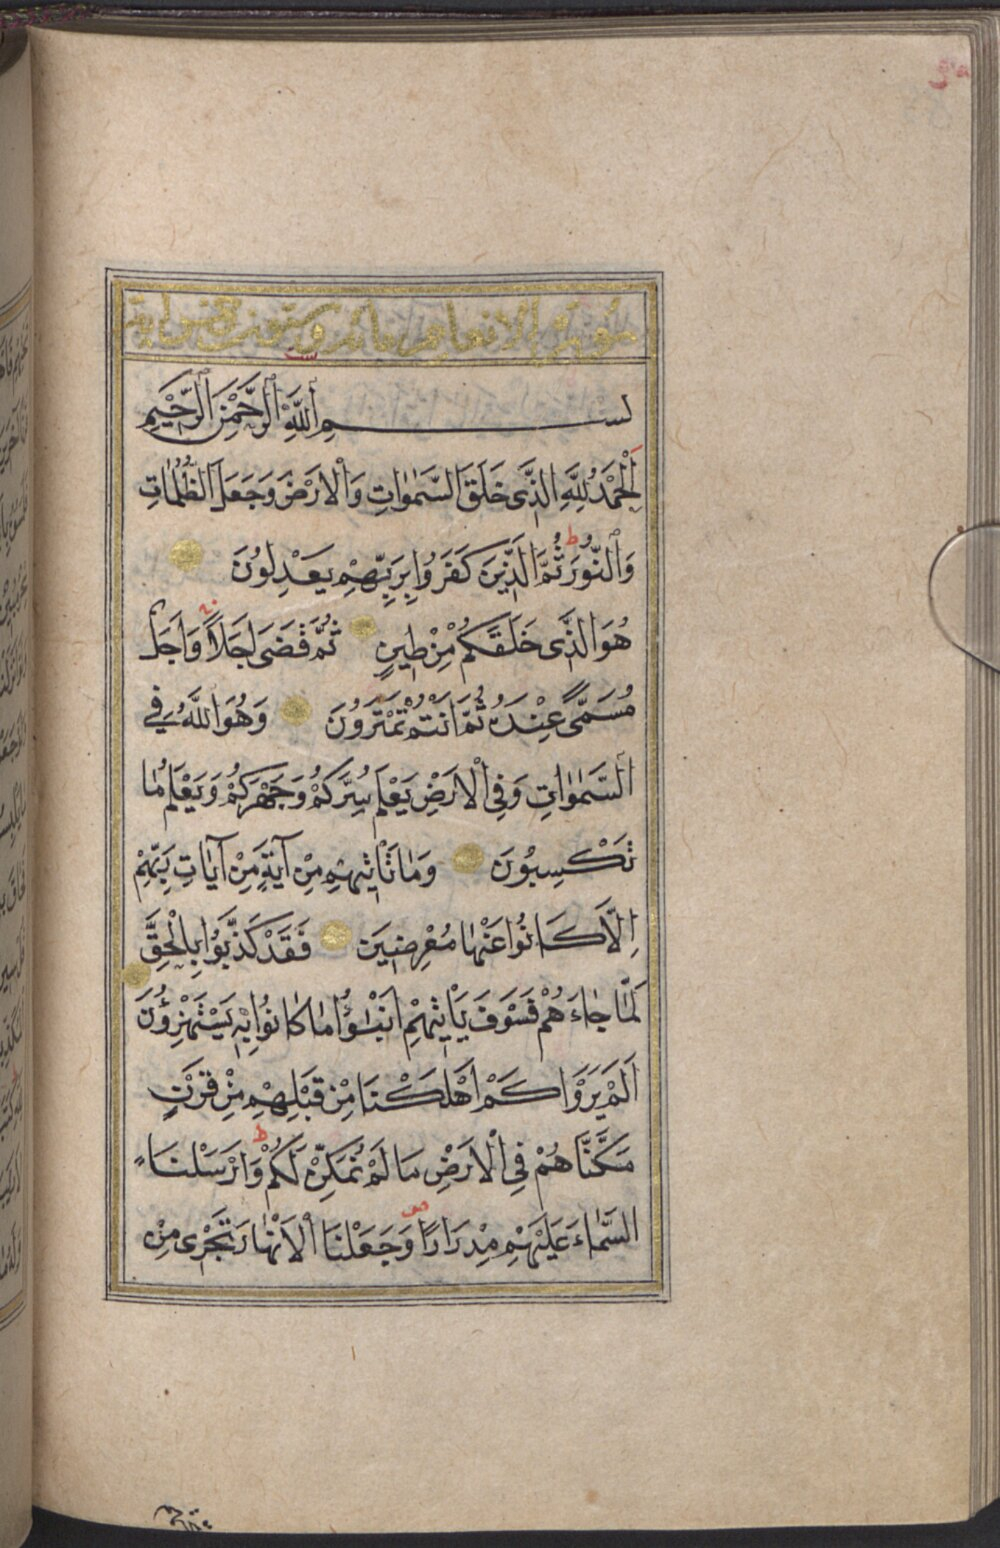 سورة الانعام مائة وستون وخمس اية
بســـــــمِ ٱللَّهِ ٱلرَّحْمٰنِ ٱلرَّحِيمِ
اَلْحَمْدُ لِلَّهِ الَّذِى خَلَقَ السَّمٰوَاتِ وَالْاَرْضَ وَجَعَلَ الظُّلُمَاتِ
وَالنُّورَ ط ثُمَّ الَّذِينَ كَفَرُوا بِرَبِّهِمْ يَعْدِلُونَ
هُوَ الَّذِى خَلَقَكُمْ مِنْ طِينٍ ثُمَّ قَضَى اَجَلاً وَاَجَلٌ
مُسَمًّى عِنْدَهُ ثُمَّ اَنْتُمْ تَمْتَرُونَ وَهُوَ اللَّهُ فِي
السَّمٰوَاتِ وَفِي الْاَرْضِ يَعْلَمُ سِرَّكُمْ وَجَهْرَكُمْ وَيَعْلَمُ مَا
تَكْسِبُونَ وَمَا تَأْتِيهِمْ مِنْ آيَةٍ مِنْ آيَاتِ رَبِّهِمْ
اِلَّا كَانُوا عَنْهَا مُعْرِضِينَ فَقَدْ كَذَّبُوا بِالْحَقِّ
لَمَّا جَاءَهُمْ فَسَوْفَ يَأْتِيهِمْ اَنْبٰؤُا مَا كَانُوا بِهِ يَسْتَهْزِؤُنَ
اَلَمْ يَرَوْا كَمْ اَهْلَكْنَا مِنْ قَبْلِهِمْ مِنْ قَرْنٍ
مَكَّنَّاهُمْ فِي الْاَرْضِ مَا لَمْ نُمَكِّنْ لَكُمْ ط وَاَرْسَلْنَا
السَّمَاءَ عَلَيْهِمْ مِدْرَارًا ص وَجَعَلْنَا الْاَنْهَارَ تَجْرِى مِنْ